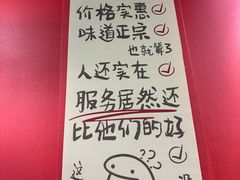 价格实惠
味道正宗
也就算了
人还实在
服务居然还
比他们的好
???
这